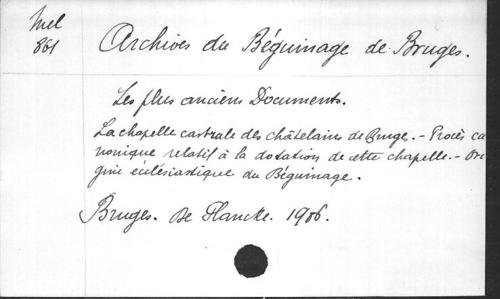 Mel
861
Archives du Béguinage de Bruges.
Les plus anciens Documents.
La chapelle castrale des châtelains de Bruge. - Procès ca
nonique relatif à la dotation de cette chapelle. - Ori
gine ecclésiastique du Béguinage.
Bruges. De Plancke. 1906.